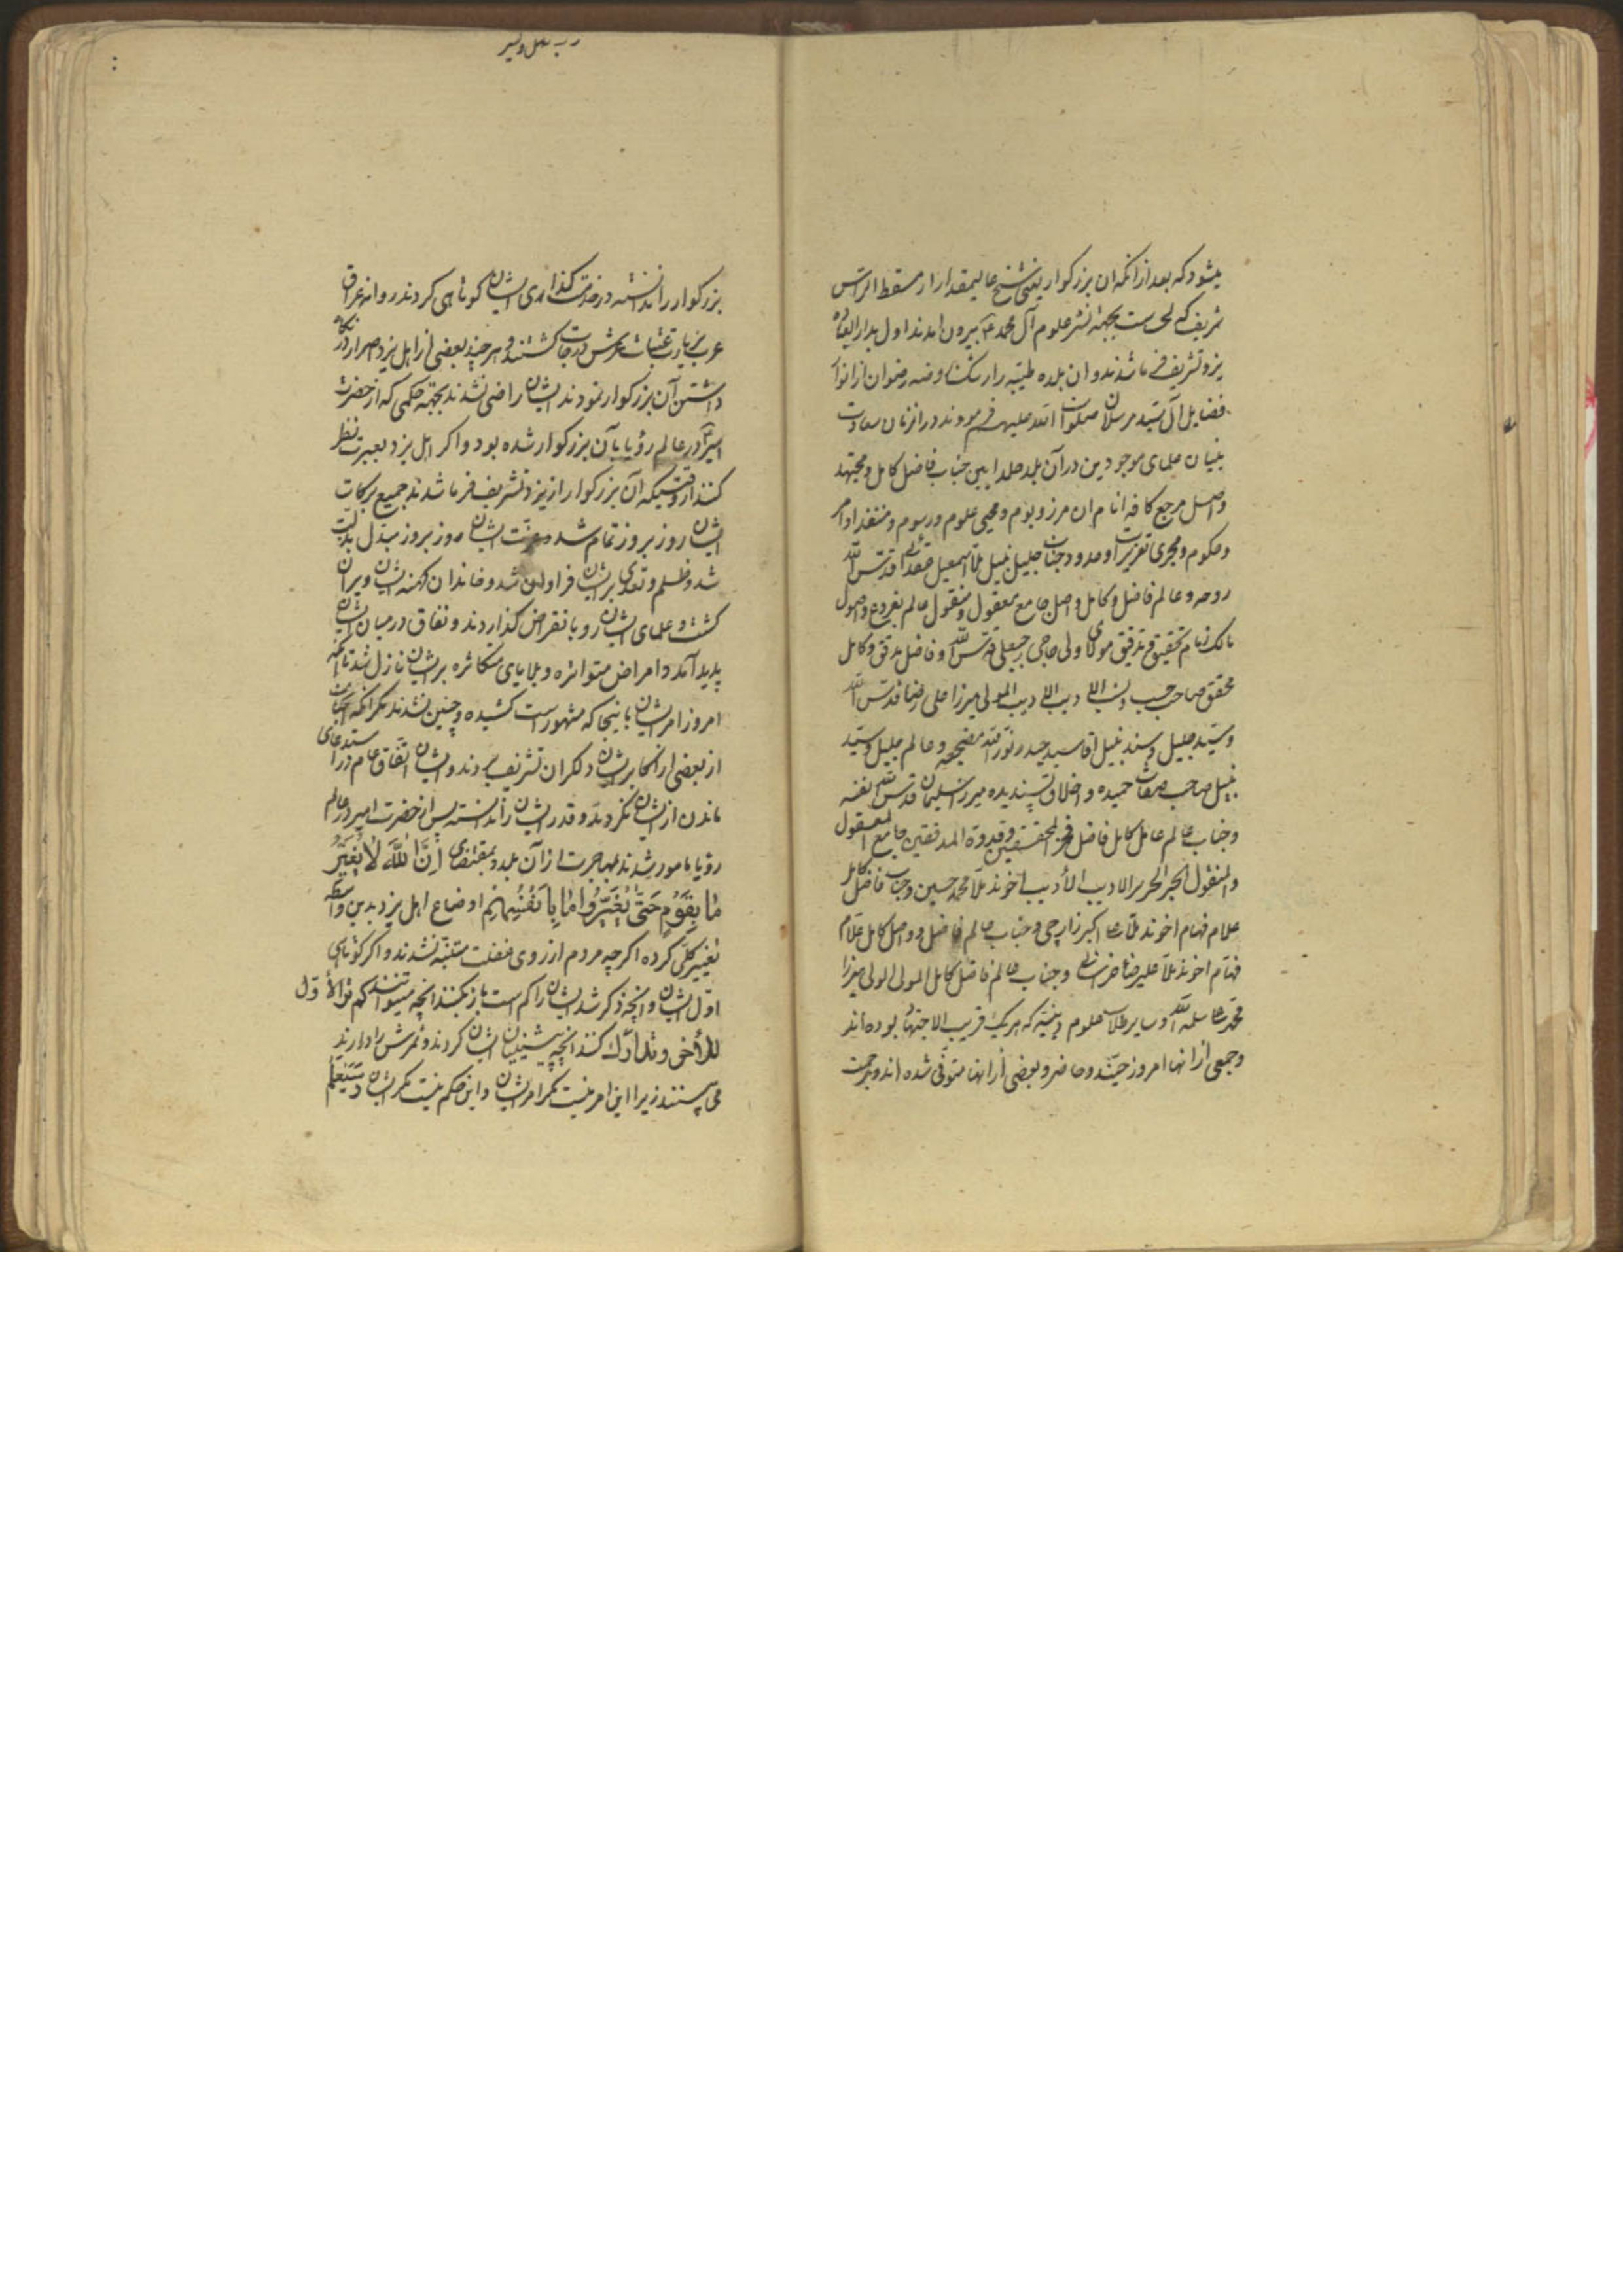 میشود که بعد از انکه ان بزرکوار یعنی شیخ عالیمقدار از مسقط الراس
شریف که لحسا است بجهة نشر علوم آل محمد ع بیرون امدند اول بدار العباده
یزد تشریف فرما شدند و ان بلده طیبه را رشک روضه رضوان از انوار
فضایل آل سید مرسلان صلوات الله علیهم فرمودند در انزمان سعادت
بنیان علمای موجودین در آن بلد خلد ایین جناب فاضل کامل و مجتهد
واصل مرجع کافه انام ان مرز و بوم و محیی علوم و رسوم و منفذ اوامر
و حکوم و مجری تعزیرات و حدود جناب جلیل نبیل ملا اسمعیل عقدائی قدس الله
روحه و عالم فاضل و کامل واصل جامع معقول و منقول عالم بفروع و اصول
مالک زمام تحقیق و تدقیق مولای ولی حاجی رجبعلی قدس الله و فاضل مدقق و کامل
محقق صاحب حسب و نسب المولی میرزا علی رضا قدس الله
و سید جلیل و سند نبیل اقا سید حیدر نور الله مضجعه و عالم جلیل و سید
نبیل صاحب صفات حمیده و اخلاق پسندیده میرزا سلیمان قدس الله نفسه
و جناب عالم عامل کامل فاضل فخر المحققین و قدوة المدققین جامع المعقول
والمنقول الحبر النحریر الادیب الأدیب اخوند ملا محمد حسین و جناب فاضل کامل
علام فهام اخوند ملا علی اکبر زارچی و جناب عالم فاضل و واصل کامل علام
فهام اخوند ملا علیرضا و جناب عالم فاضل کامل المولی الولی میرزا
محمد علی سلمه الله و سایر طلاب علوم دینیه که هر یک قریب الاجتهاد بوده اند
و جمعی از انها امروز حیند و حاضر و بعضی از انها متوفی شده اند و برحمت
رب
بزرکوار را ندانسته در خدمت کذاری ایشان کوتاهی کردند روانه عراق
عرب بزیارت عتبات عرش درجات کشتند و هر چند بعضی از اهل یزد اصرار در نکاه
داشتن آن بزرکوار نمودند ایشان راضی نشدند بجهة حکمی که از حضرت
امیر ع در عالم رؤیا بآن بزرکوار شده بود و اکر اهل یزد بعبرت نظر
کنند از وقتیکه آن بزرکوار از یزد تشریف فرما شدند جمیع برکات
ایشان روز بروز تمام شد و عزت ایشان روز بروز مبدل بذلت
شد و ظلم و تعدی بر ایشان فراوان شد و خاندان کهنه ایشان ویران
کشت و علمای ایشان رو بانقراض کذاردند و نفاق در میان ایشان
پدید آمد و امراض متواتره و بلایای متکاثره بر ایشان نازل شد تا انکه
امروز امر ایشان باینجا که مشهور است کشیده و چنین نشدند مکر انکه انجناب
از بعضی از اکابر ایشان دلکران تشریف بردند و ایشان اتفاق عام در استدعای
ماندن از ایشان نکردند و قدر ایشان را ندانستند پس از حضرت امیر در عالم
رؤیا مامور شدند بمهاجرت از آن بلد و بمقتضای اِنَّ اللّٰهَ لَا یُغَیِّرُ
مَا بِقَوْمٍ حَتّٰی یُغَیِّرُوا مَا بِاَنْفُسِهِمْ اوضاع اهل یزد بدین واسطه
تغییر کلی کرده اکرچه مردم از روی غفلت متنبه نشدند و اکر کوتاهی
اول ایشان و انچه ذکر شد ایشان را کم است باز بکنند انچه میتوانند که هذا الأول
للأخر و تدارک کنند انچه پیشینیان ایشان کردند و ثمرش را دارند
می چشند زیرا این امر نیست مکر امر ایشان و این حکم نیست مکر ایشان و سَیَعْلَمُ